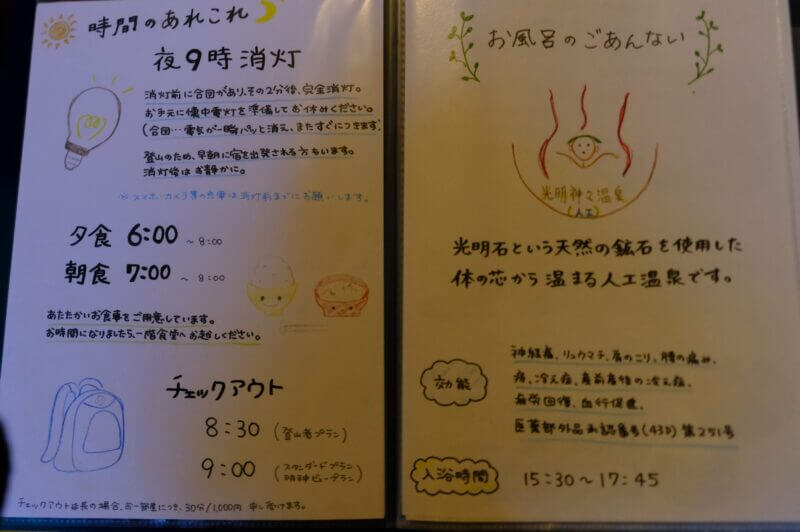 時間のあれこれ
夜9時消灯
消灯前に合図があり、その2分後、完全消灯。
お手元に懐中電灯を準備してお休みください。
(合図…電気が一瞬パッと消え、またすぐにつきます)
登山のため、早朝に宿を出発される方もいます。
消灯後はお静かに。
※スマホ・カメラ等の充電は消灯前までにお願いします。
夕食 6:00 ~8:00
朝食 7:00 ~8:00
あたたかいお食事をご用意しています。
お時間になりましたら、一階食堂へお越しください。
チェックアウト
8:30 (登山者プラン)
9:00 (スタンダードプラン
明神ビュープラン)
チェックアウト延長の場合、お一部屋につき、30分/1,000円 申し受けます。
お風呂のごあんない
光明神々温泉
(人工)
光明石という天然の鉱石を使用した
体の芯から温まる人工温泉です。
効能
神経痛、リュウマチ、肩のこり、腰の痛み、
痔、冷え症、産前産後の冷え症、
疲労回復、血行促進、
医薬部外品承認番号(43D)第251号
入浴時間
15:30~17:45